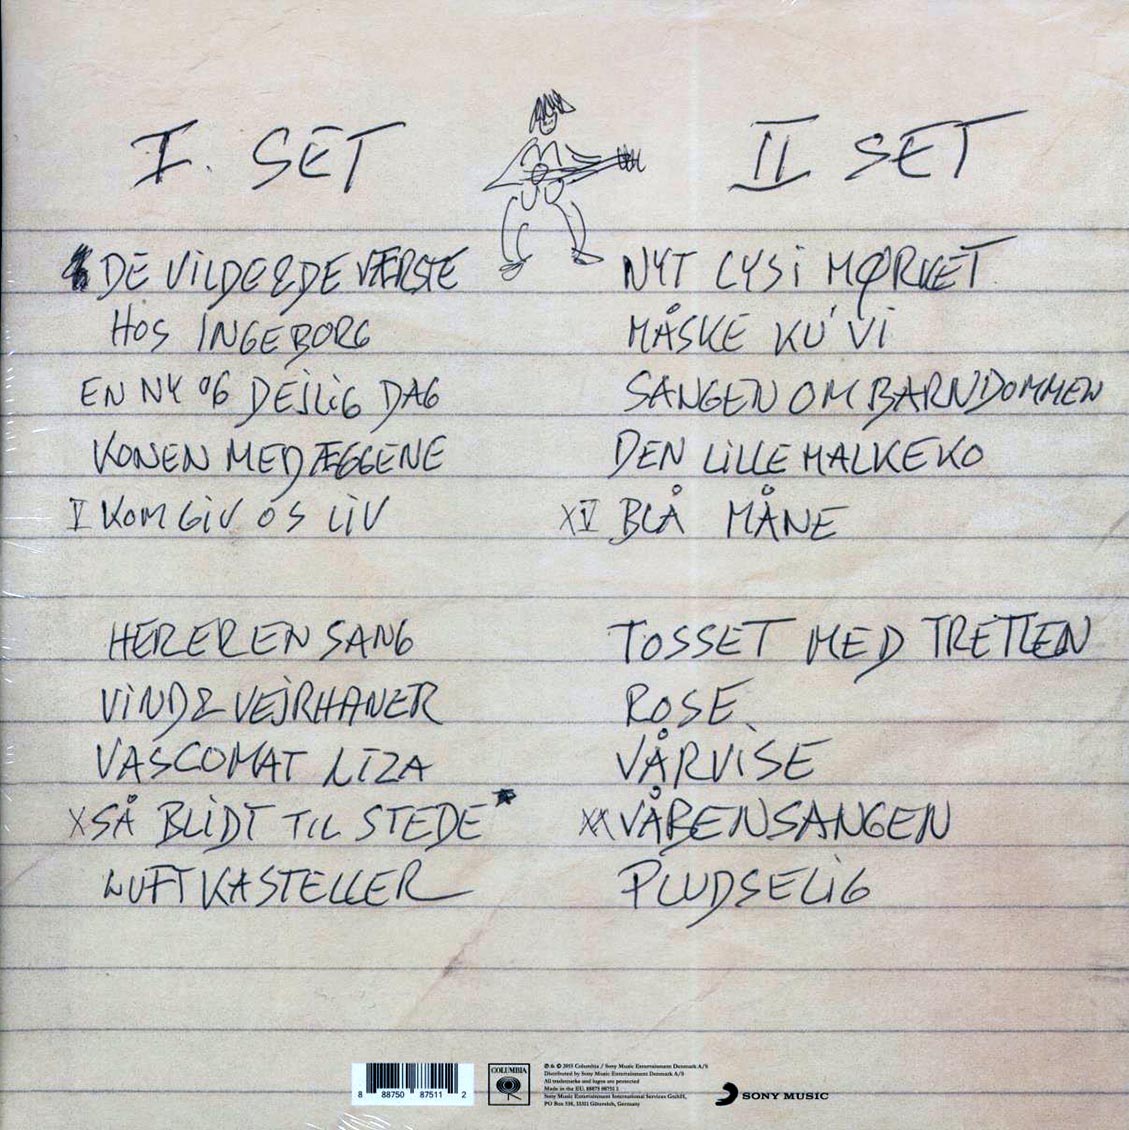 I. SET
DE VILDE & DE VÆRSTE
HOS INGEBORG
EN NY OG DEJLIG DAG
KONEN MED ÆGGENE
V KOM GIV OS LIV
HER ER EN SANG
VIND & VEJRHANER
VASCOMAT LIZA
X SÅ BLIDT TIL STEDE*
LUFTKASTELLER
II SET
NYT LYS I MØRKET
MÅSKE KU' VI
SANGEN OM BARNDOMMEN
DEN LILLE MALKEKO
XV BLÅ MÅNE
TOSSET MED TRETTEN
ROSE
VÅRVISE
XX VÅBENSANGEN
PLUDSELIG
8 88750 87511 2
COLUMBIA
R
℗ & © 2015 Columbia / Sony Music Entertainment Denmark A/S
Distributed by Sony Music Entertainment Denmark A/S
All trademarks and logos are protected
Made in the EU. 88875 08751 1
Sony Music Entertainment International Services GmbH,
PO Box 510, 33311 Gütersloh, Germany
SONY MUSIC